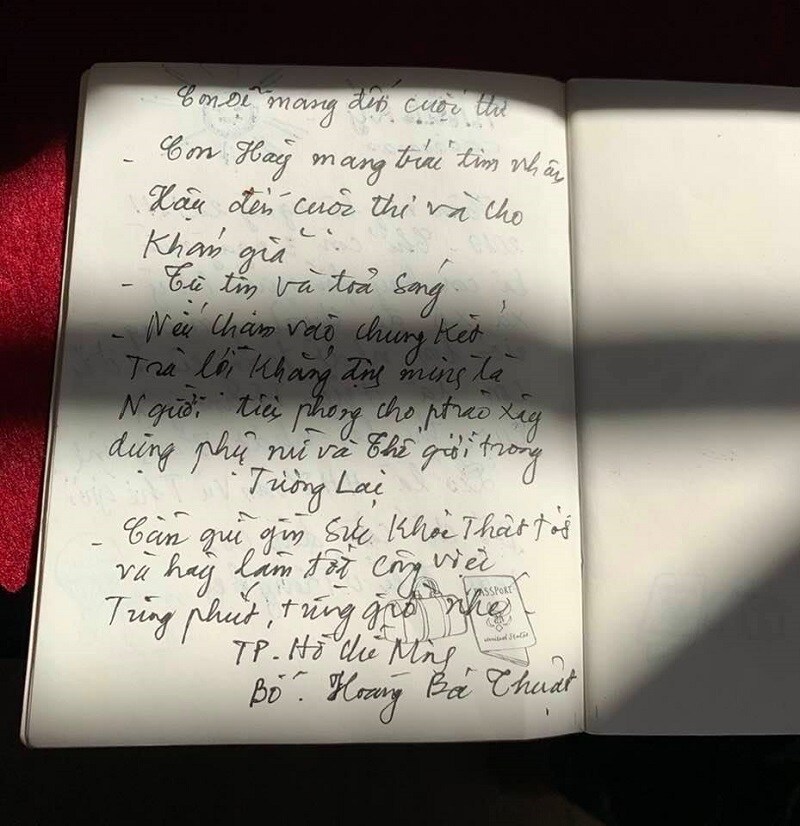 Con để mang đến cuộc thi
- Con Hãy mang trái tim nhân
Hậu đến cuộc thi và cho
Khán giả
- Tự tin và toả sáng
- Nếu chạm vào chung kết
Trả lời khẳng định mình là
Người tiên phong cho ptrào xây
dựng phụ nữ và Thế giới trong
Tương Lai
- Cần giữ gìn Sức Khỏe Thật tốt
và hãy làm tốt công việc
Từng phút, từng giờ nhé
PASSPORT
United States
TP. Hồ Chí Minh
Bố. Hoàng Bá Thuật